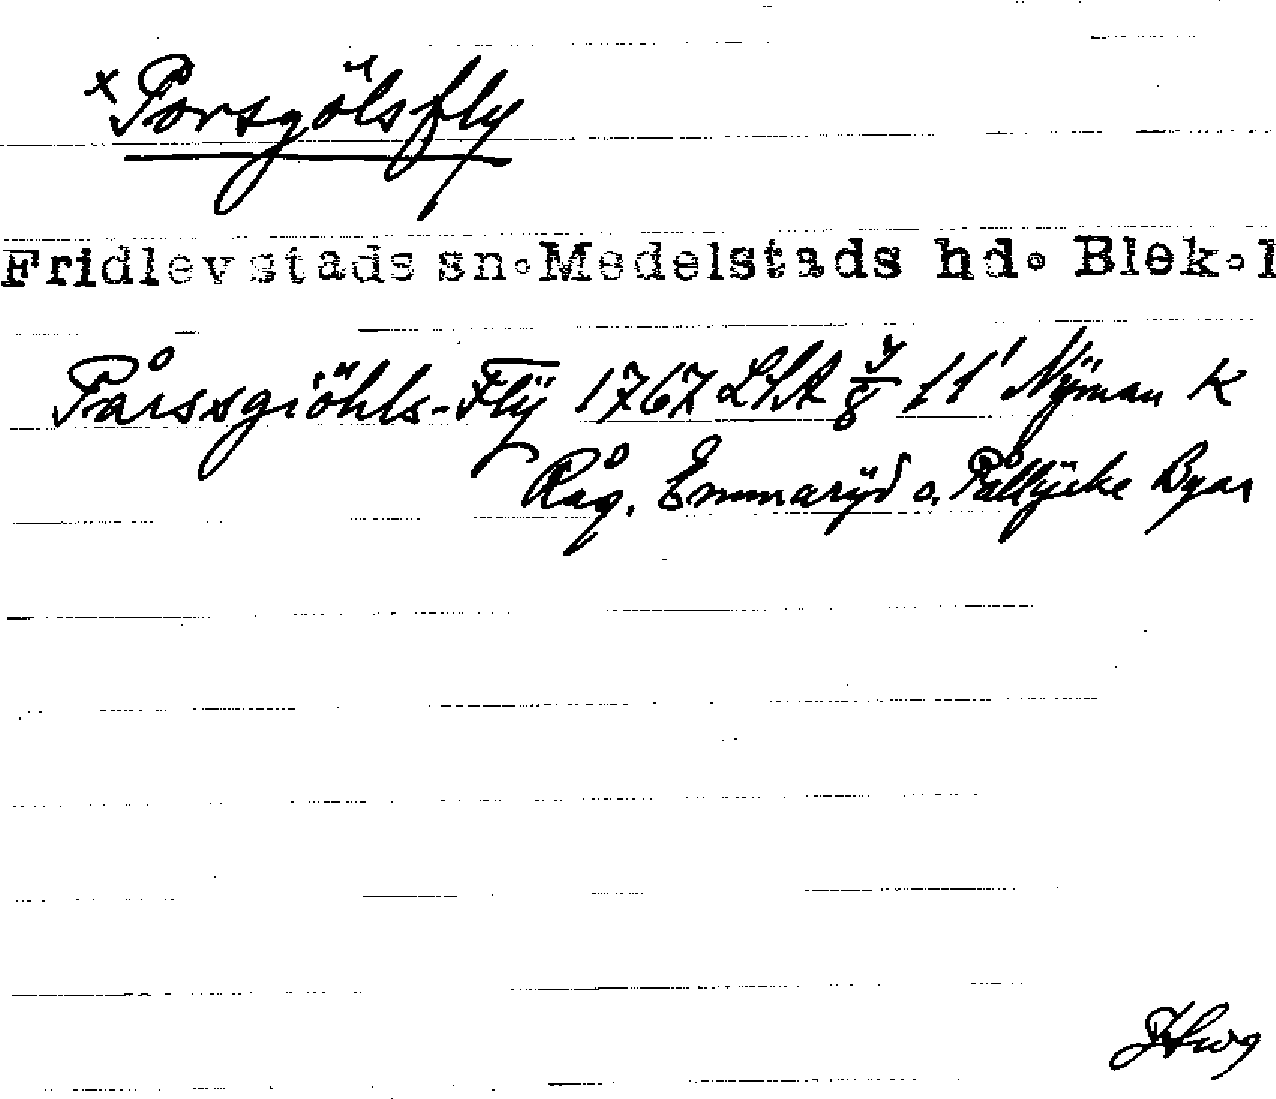 ×Porsgölsfly
Fridlevstads sn. Medelstads hd. Blek.l
Pårssgiöhls-Flÿ 1767 LSA 7/8 11' Nÿman K
Råg. Emmarÿd o. Pållÿcke Byar